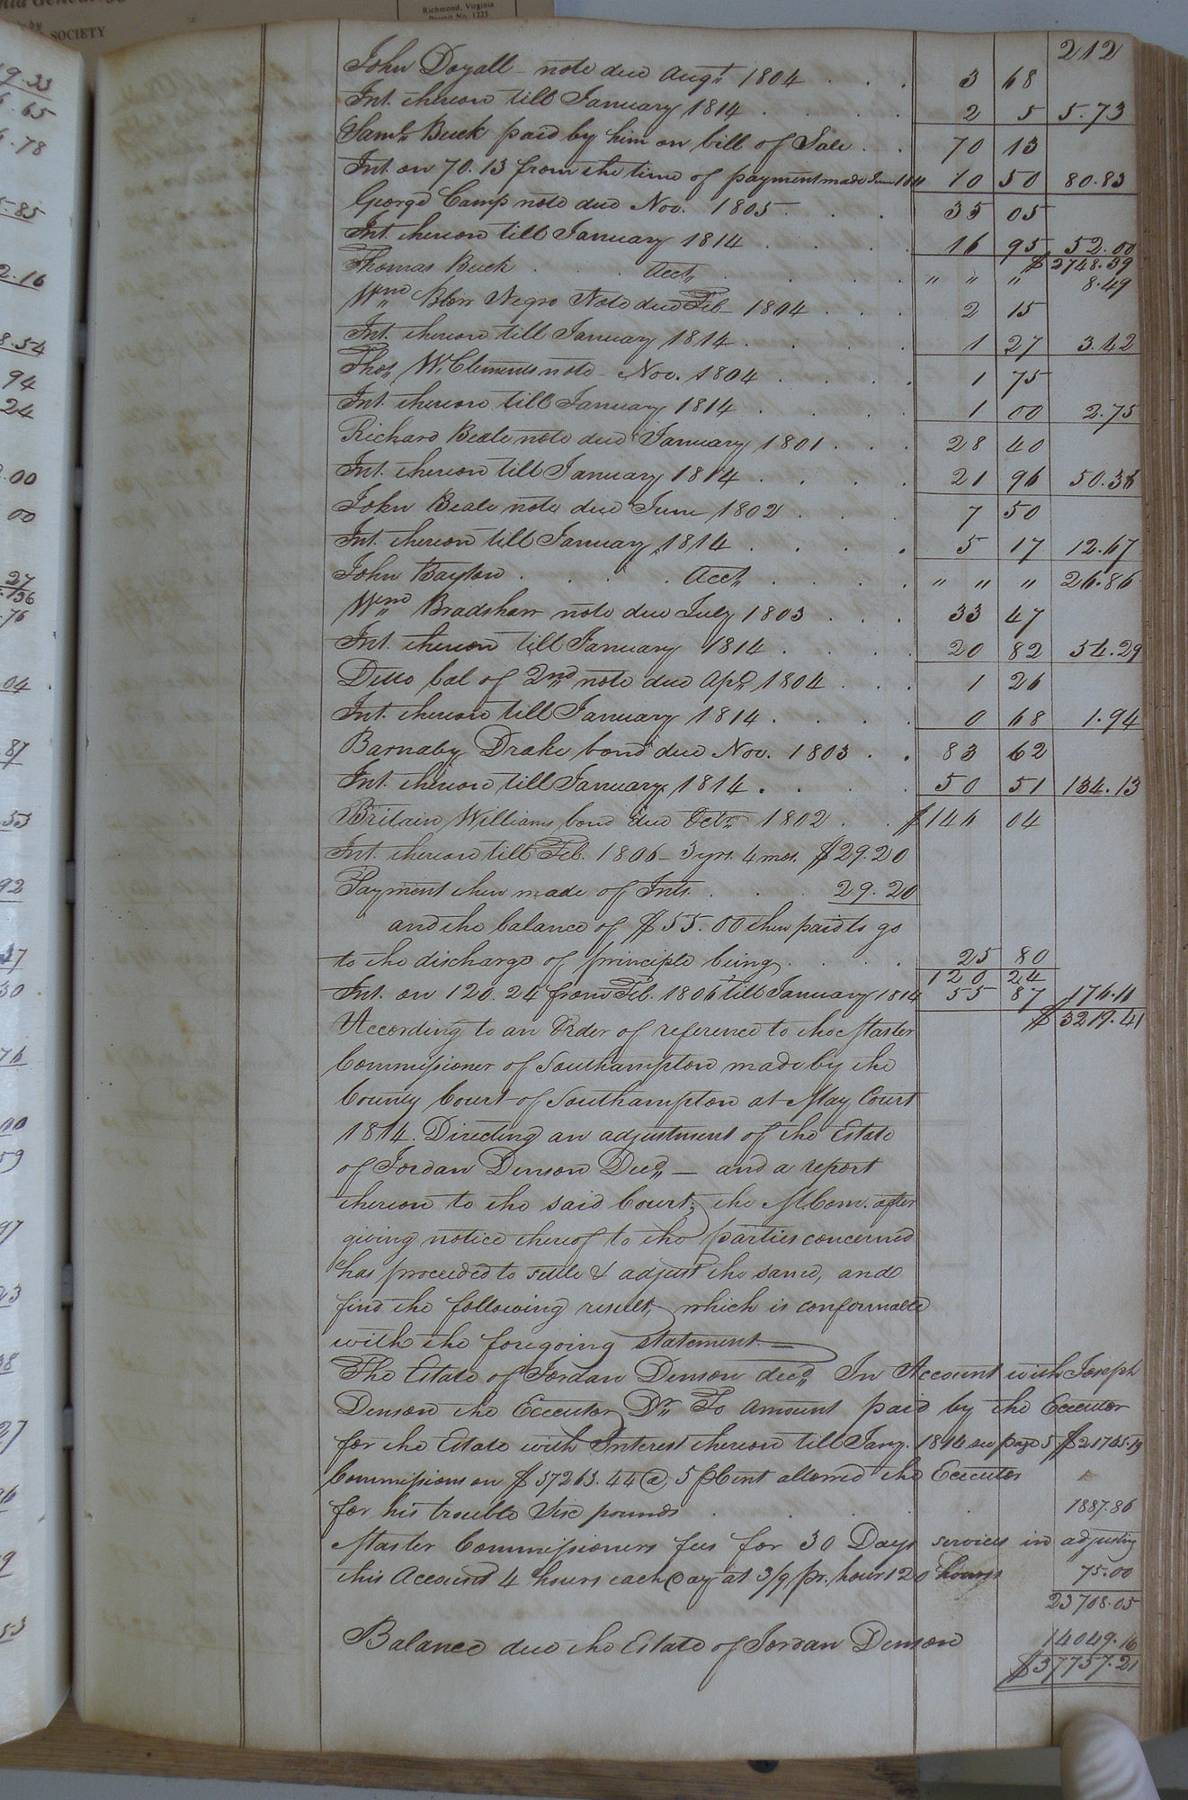 Richmond, Virginia
SOCIETY
212
John Doyall note due Augt 1804 . . . 3 68
Int. thereon till January 1814 . . . . 2 5 5.73
Saml. Buck paid by him on bill of Sale . . 70 13
Int. on 70.13 from the time of payment made June 10 50 80.83
George Camp note due Nov. 1805 . . . 35 05
Int. thereon till January 1814 . . . 16 95 52.00
$2748.39
Thomas Buck . . . Acct, . . . " " " 8.49
Wm Negro Note due Feb 1804 . . . 2 15
Int. thereon till January 1814 . . . . 1 27 3.42
Thos, W. Clements note Nov. 1804 . . . . 1 75
Int. thereon till January 1814 . . . . 1 00 2.75
Richard Beale note due January 1801 . . . 28 40
Int. thereon till January 1814 . . . . 21 96 50.36
John Beale note due June 1802 . . . 7 50
Int. thereon till January 1814 . . . . 5 17 12.67
John Bayton . . . . Acct, . . . . " " " 26.86
Wm Bradshaw note due July 1803 . . . 33 47
Int. thereon till January 1814 . . . . 20 82 54.29
Ditto bal of 2nd note due Apl, 1804 . . . 1 26
Int. thereon till January 1814 . . . . 0 68 1.94
Barnaby Drake bond due Nov. 1803 . . 83 62
Int. thereon till January 1814 . . . . 50 51 134.13
Britain Williams bond due Octr, 1802 . . $146 04
Int. thereon till Feb. 1806 - 3 yrs. 4 mos. $29.20
Payment then made of Ints. . . . 29.20
and the balance of $55.00 then paid to go
to the discharge of principle being . . . . 25 80
120 24
Int. on 120.24 from Feb. 1806 till January 1814 55 87 176.11
$3219.41
According to an Order of reference to the Master
Commissioner of Southampton made by the
County Court of Southampton at May Court
1814. Directing an adjustment of the Estate
of Jordan Denson Decd, — and a report
thereon to the said Court; the M. Com. after
giving notice thereof to the parties concerned
has proceeded to settle & adjust the same, and
find the following result, which is conformable
with the foregoing statement —
The Estate of Jordan Denson decd, In Account with Joseph
Denson the Executor Dr, To Amount paid by the Executor
for the Estate with Interest thereon till Jany. 1814 see page 5 $21745.19
Commissions on $37263.44 @ 5 pCent allowed the Executor
for his trouble &c pounds . . . . 1887.86
Master Commissioners fees for 30 Days services in adjusting
this Account 4 hours each Day at 3/9 pr. hour 120 hours 75.00
23708.05
Balance due the Estate of Jordan Denson 14049.16
$37757.21